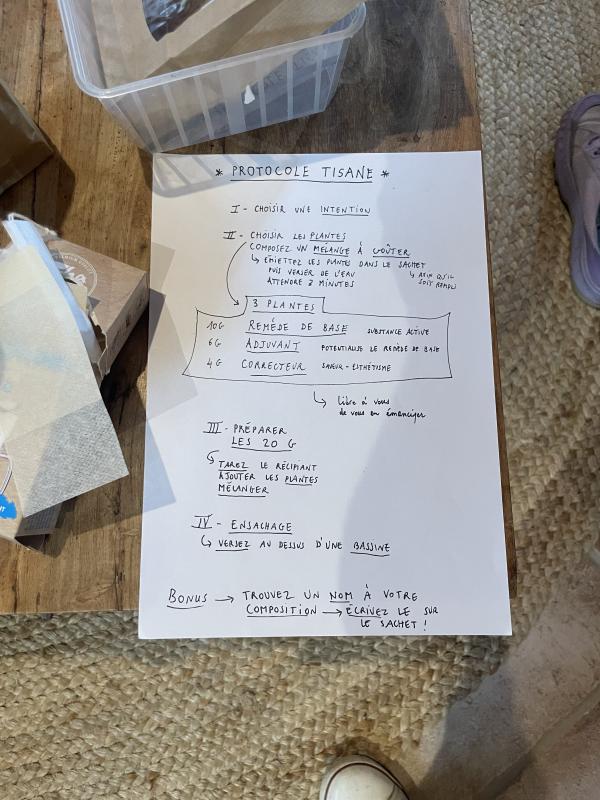 * PROTOCOLE TISANE *
I - CHOISIR UNE INTENTION
II - CHOISIR LES PLANTES
COMPOSEZ UN MELANGE À GOÛTER
↳ ÉMIETTEZ LES PLANTES DANS LE SACHET
PUIS VERSER DE L'EAU
ATTENDRE 3 MINUTES
↳ AFIN QU'IL
SOIT REMPLI
3 PLANTES
10G REMÈDE DE BASE SUBSTANCE ACTIVE
6G ADJUVANT POTENTIALISE LE REMÈDE DE BASE
4G CORRECTEUR SAVEUR - ESTHÉTISME
↳ libre à vous
de vous en émanciper
III - PRÉPARER
LES 20 G
↳ TAREZ LE RÉCIPIANT
AJOUTER LES PLANTES
MÉLANGER
IV - ENSACHAGE
↳ VERSEZ AU DESSUS D'UNE BASSINE
BONUS → TROUVEZ UN NOM À VOTRE
COMPOSITION → ÉCRIVEZ LE SUR
LE SACHET !